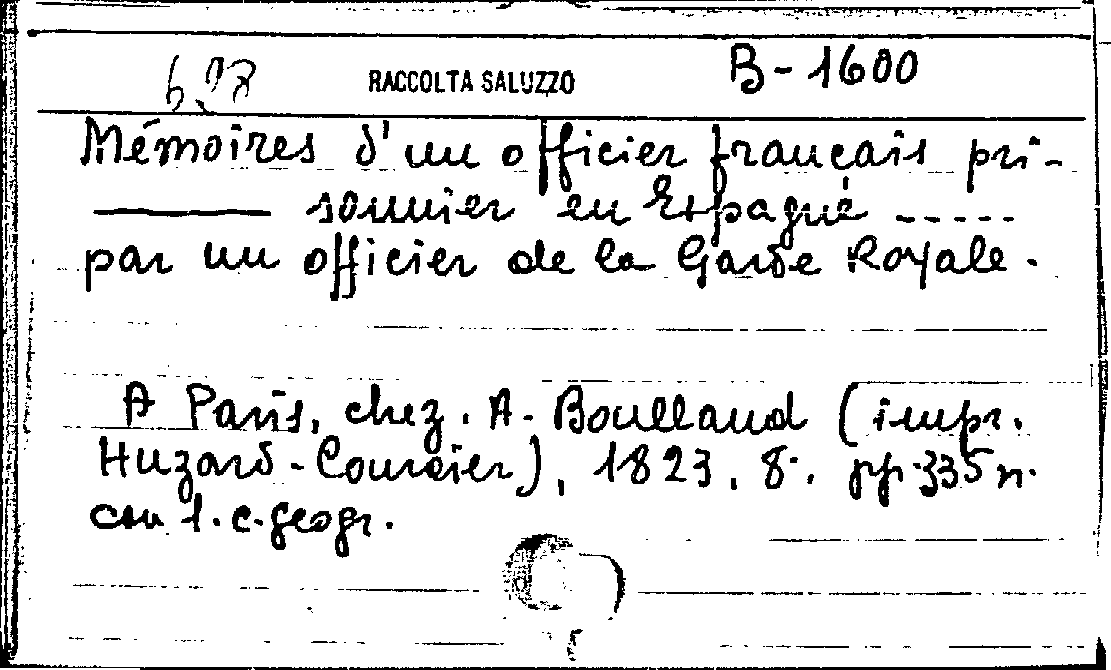 698 RACCOLTA SALUZZO B-1600
Mémoires d'un officier français pri-
sonnier en Espagne -----
par un officier de la Garde Royale.
A Paris, chez. A. Boulland (impr.
Huzard-Courcier), 1823, 8°. pp. 335 n.
con 1. c. geogr.